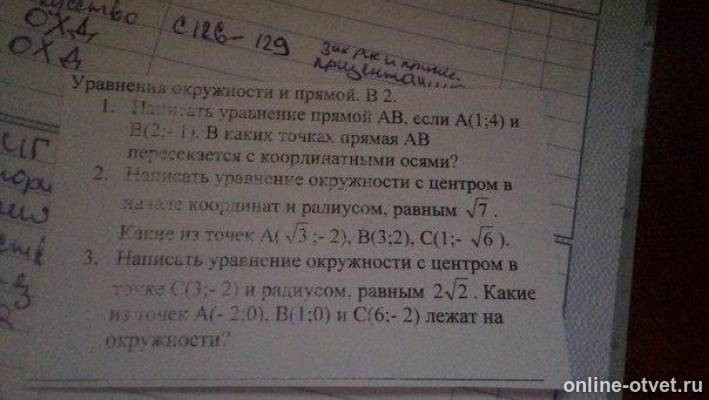 ОХД
ОХД
С 126-129
Уравнения окружности и прямой. В 2.
1. Написать уравнение прямой АВ, если А(1;4) и
В(2;- 1). В каких точках прямая АВ
пересекается с координатными осями?
2. Написать уравнение окружности с центром в
начале координат и радиусом, равным √7 .
Какие из точек А( √3 ;- 2), В(3;2), С(1;- √6 ).
3. Написать уравнение окружности с центром в
точке С(3;- 2) и радиусом, равным 2√2 . Какие
из точек А(- 2;0), В(1;0) и С(6;- 2) лежат на
окружности?
online-otvet.ru